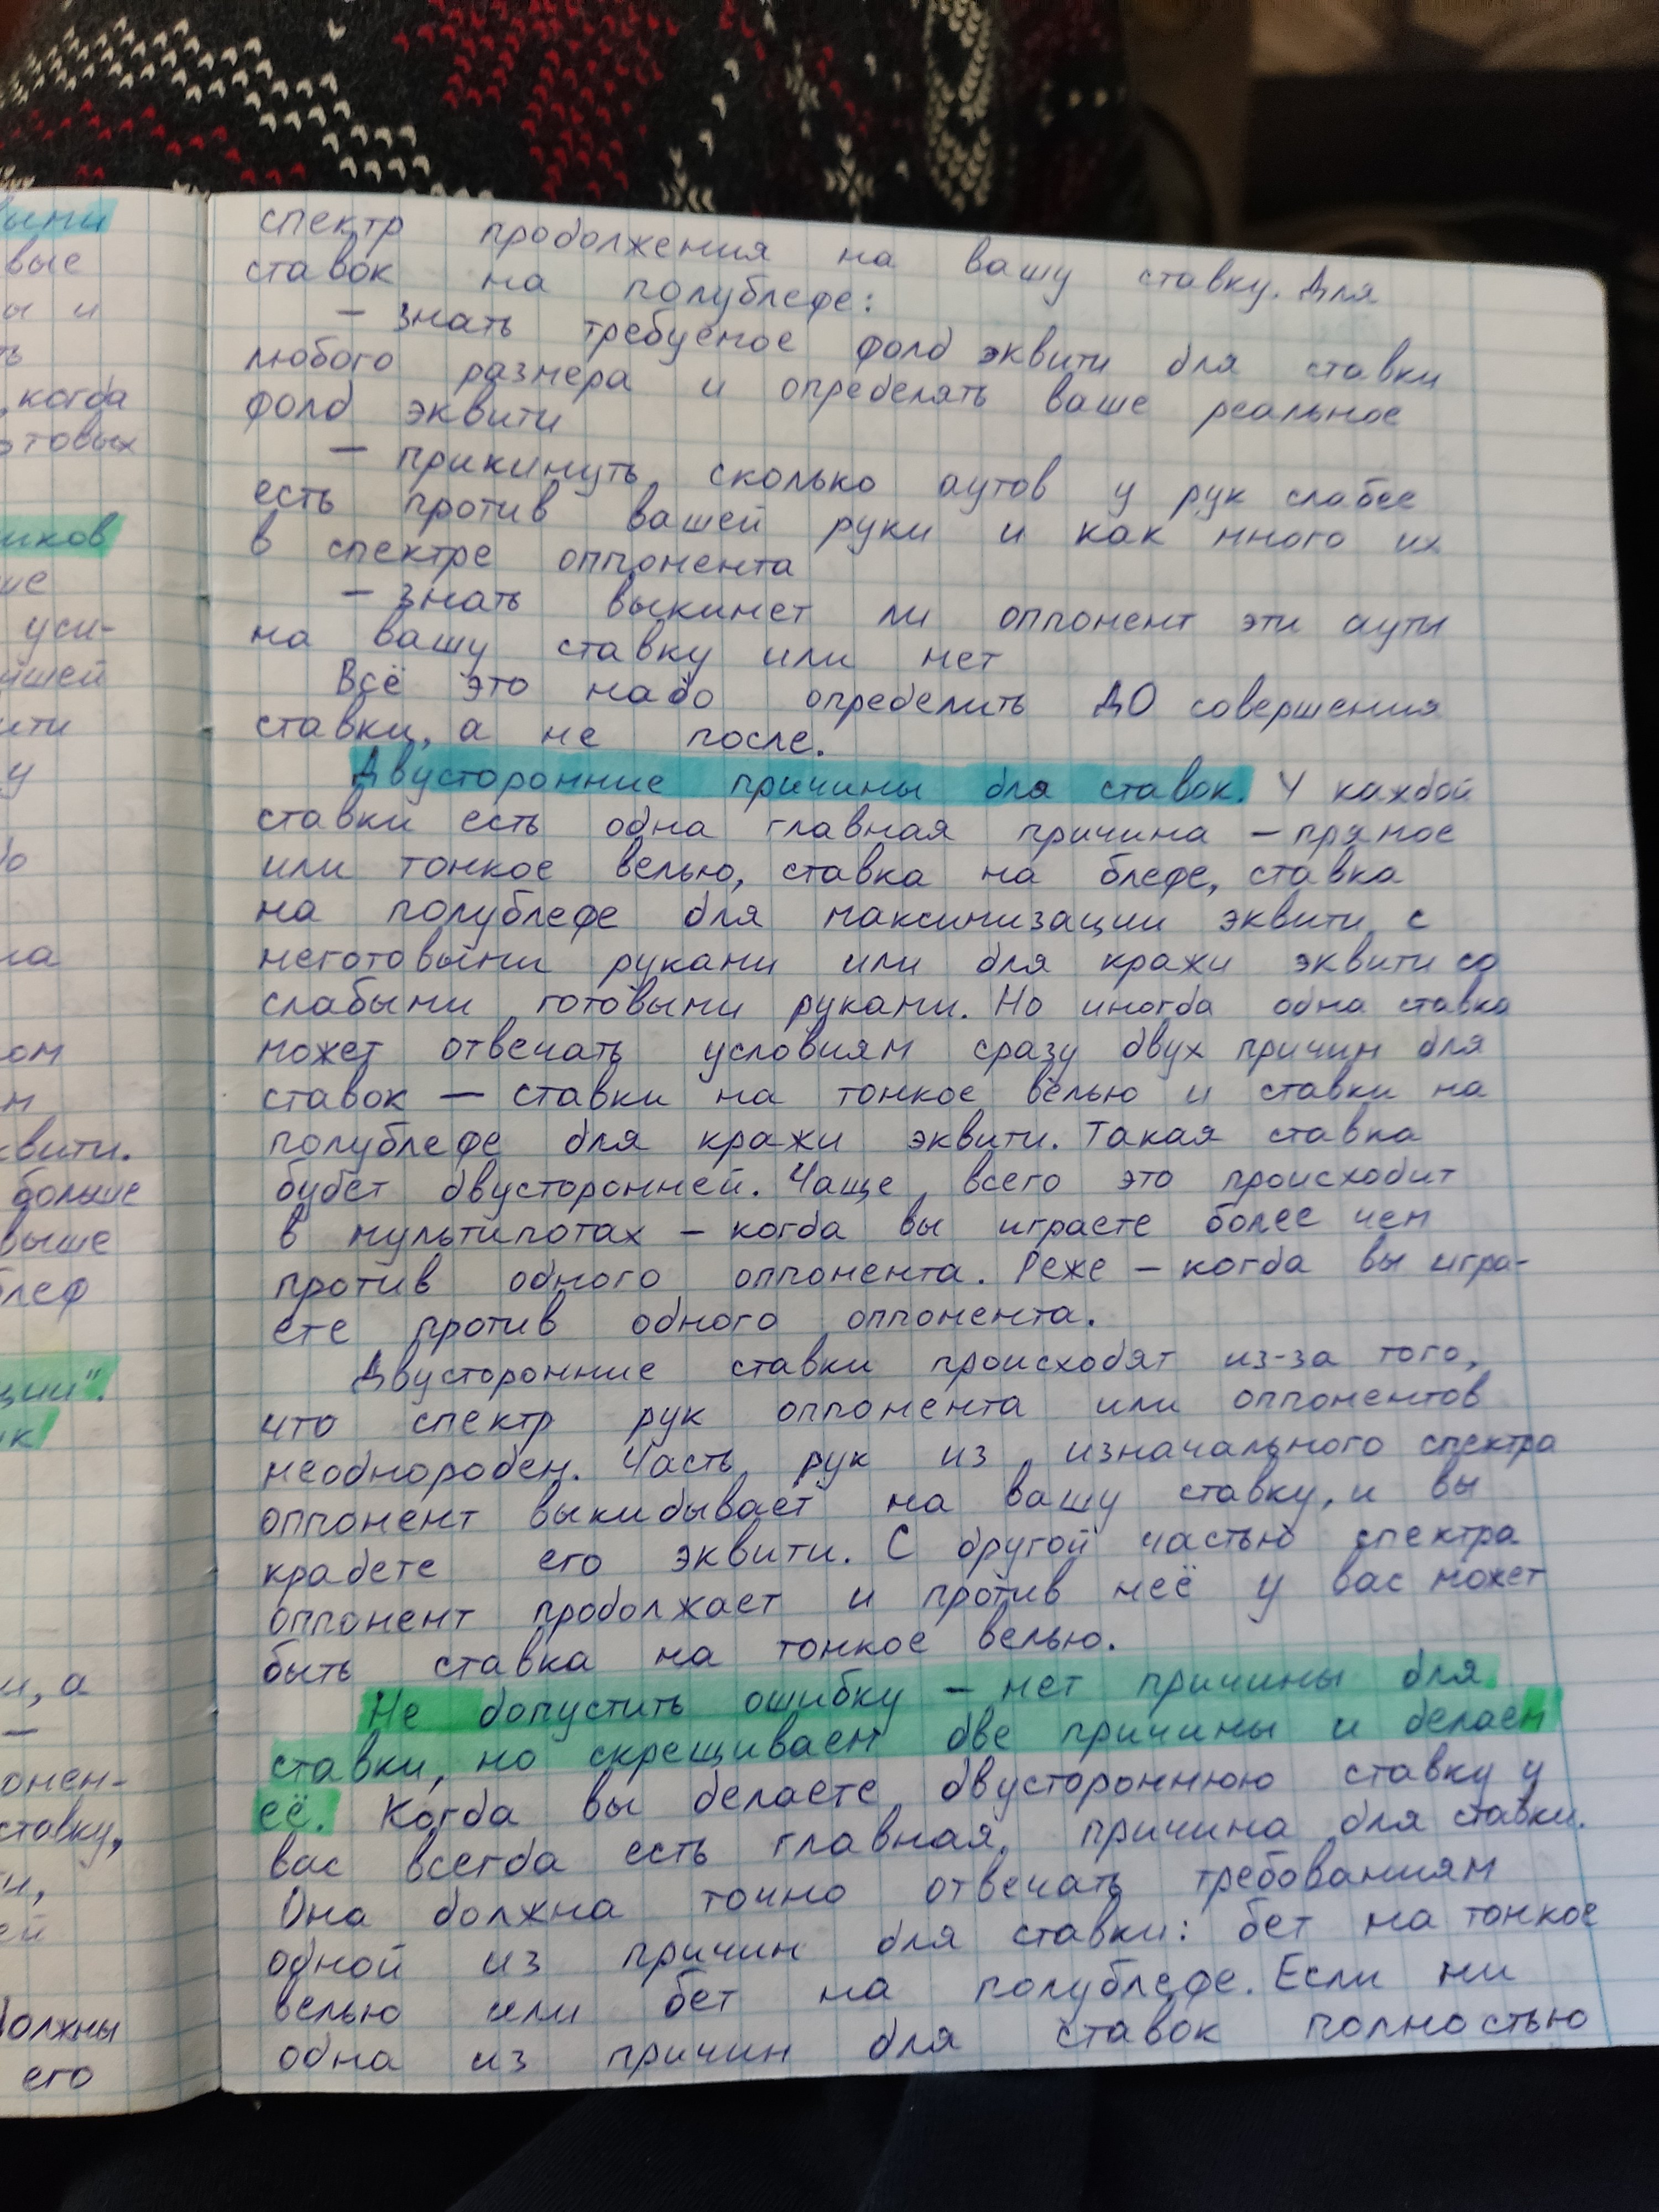 спектр продолжения на вашу ставку. Для
ставок на полублефе:
– знать требуемое фолд эквити для ставки
любого размера и определять ваше реальное
фолд эквити
– прикинуть сколько аутов у рук слабее
есть против вашей руки и как много их
в спектре оппонента
– знать выкинет ли оппонент эти ауты
на вашу ставку или нет
Всё это надо определить ДО совершения
ставки, а не после.
Двусторонние причины для ставок. У каждой
ставки есть одна главная причина – прямое
или тонкое велью, ставка на блефе, ставка
на полублефе для максимизации эквити с
неготовыми руками или для кражи эквити со
слабыми готовыми руками. Но иногда одна ставка
может отвечать условиям сразу двух причин для
ставок – ставки на тонкое велью и ставки на
полублефе для кражи эквити. Такая ставка
будет двусторонней. Чаще всего это происходит
в мультипотах – когда вы играете более чем
против одного оппонента. Реже – когда вы игра-
ете против одного оппонента.
Двусторонние ставки происходят из-за того,
что спектр рук оппонента или оппонентов
необнороден. Часть рук из изначального спектра
оппонент выкидывает на вашу ставку, и вы
крадете его эквити. С другой частью спектра
оппонент продолжает и против неё у вас может
быть ставка на тонкое велью.
Не допустить ошибку – нет причины для
ставки, но скрещиваем две причины и делаем
её. Когда вы делаете двустороннюю ставку у
вас всегда есть главная причина для ставки.
Она должна точно отвечать требованиям
одной из причин для ставки: бет на тонкое
велью или бет на полублефе. Если ни
одна из причин для ставок полностью
выми
вые
ы и
ть
, когда
отовых
иков
ие
уси-
йшей
ити
у
до
на
ом
м
квити.
больше
выше
леф
ции".
ик
и, а
–
онен-
ставку,
и,
ей
должны
его